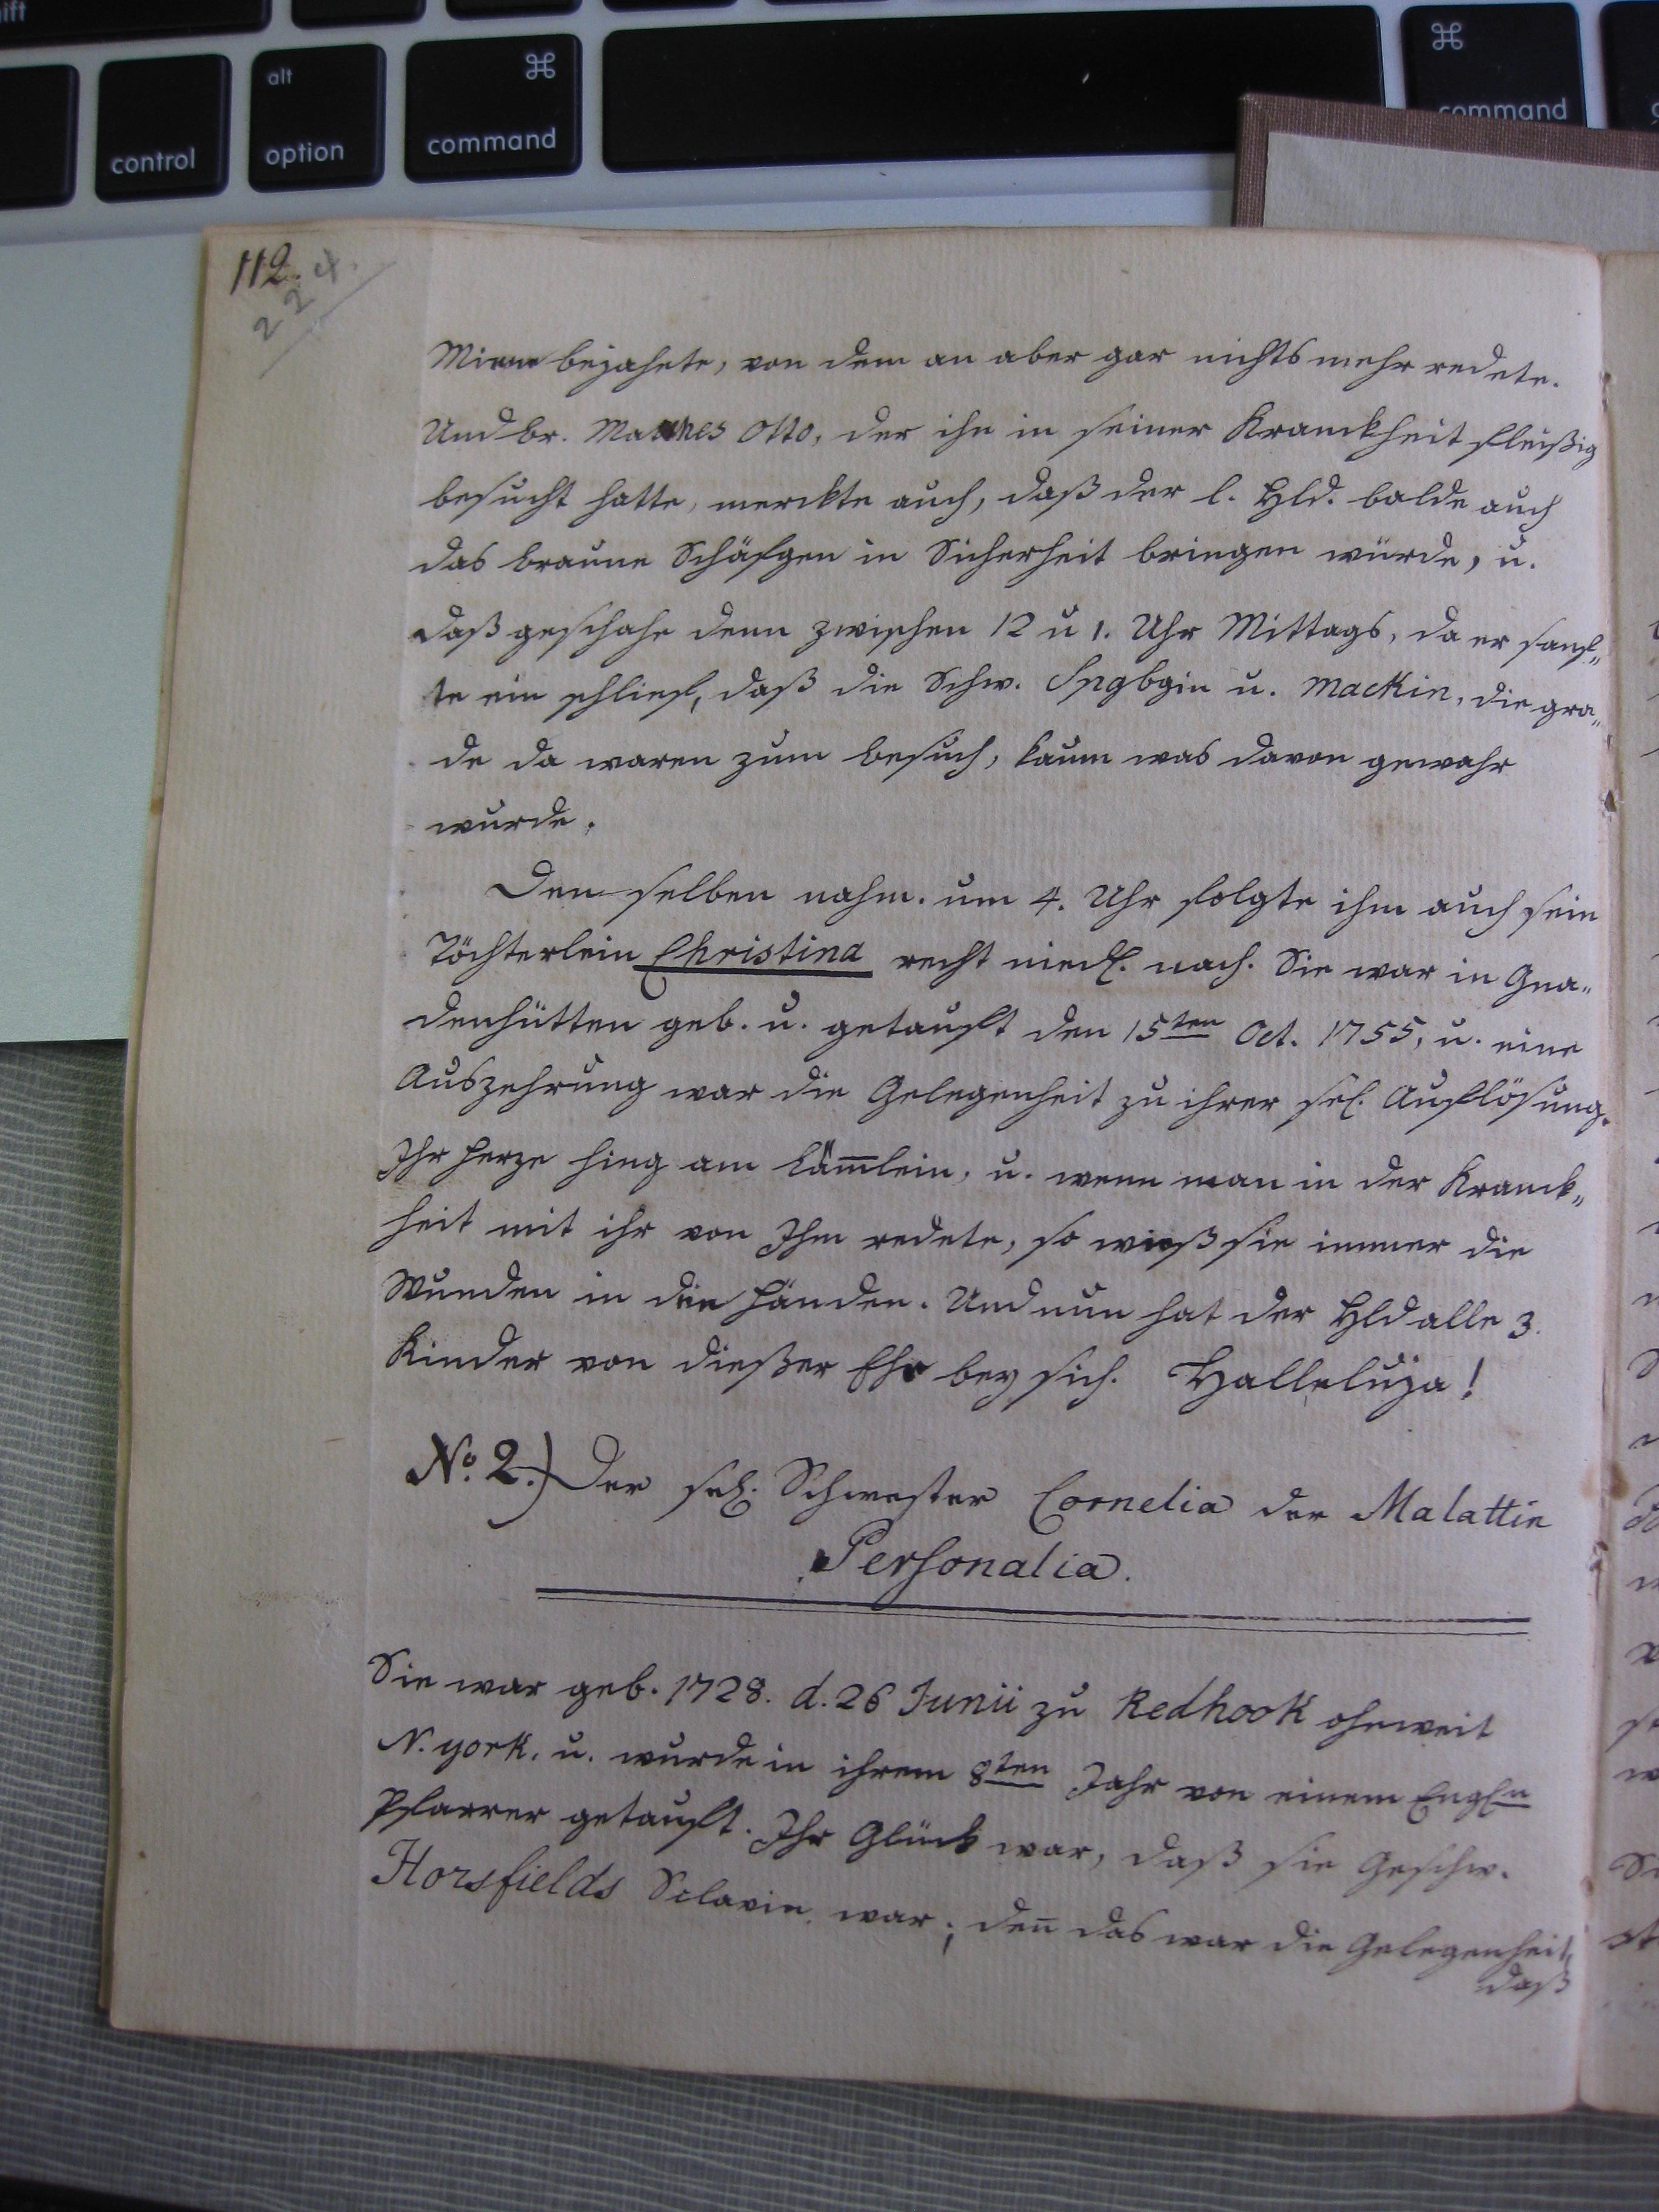 shift
control
alt
option
⌘
command
⌘
command
112.
224.
Miene bejahete, von dem an aber gar nichts mehr redete.
Und br. Matthes Otto, der ihn in seiner Kranckheit fleißig
besucht hatte, merckte auch, daß der l. Hld. balde auch
das braune Schäfgen in Sicherheit bringen würde, u.
daß geschahe denn zwischen 12 u 1. Uhr Mittags, da er sanf„
te ein schlief, daß die Schw. Spgbgin u. Mackin, die gra„
de da waren zum besuch, kaum was davon gewahr
wurde.
Den selben nahm. um 4. Uhr folgte ihm auch sein
Töchterlein Christina recht niedl. nach. Sie war in Gna„
denhütten geb. u. getauft den 15ten Oct. 1755, u. eine
Auszehrung war die Gelegenheit zu ihrer sel. Auflösung.
Ihr Herze hing am Läm̄lein, u. wenn man in der Kranck„
heit mit ihr von Ihm redete, so wieß sie immer die
Wunden in den Händen. Und nun hat der Hld alle 3.
Kinder von dießer Ehe bey sich. Halleluja!
No. 2.) Der sel. Schwester Cornelia der Malattin
Personalia.
Sie war geb. 1728. d. 26 Junii zu Redhook ohnweit
N. york. u. wurde in ihrem 8ten Jahr von einem Engln
Pfarrer getauft. Ihr Glück war, daß sie Geschw.
Horsfields Sclavin war; den̄ das war die Gelegenheit,
daß